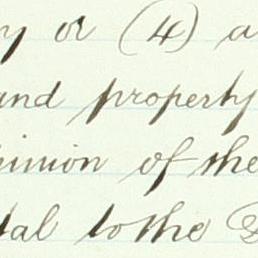 y or (4) a
and property
pinion of the
tal to the